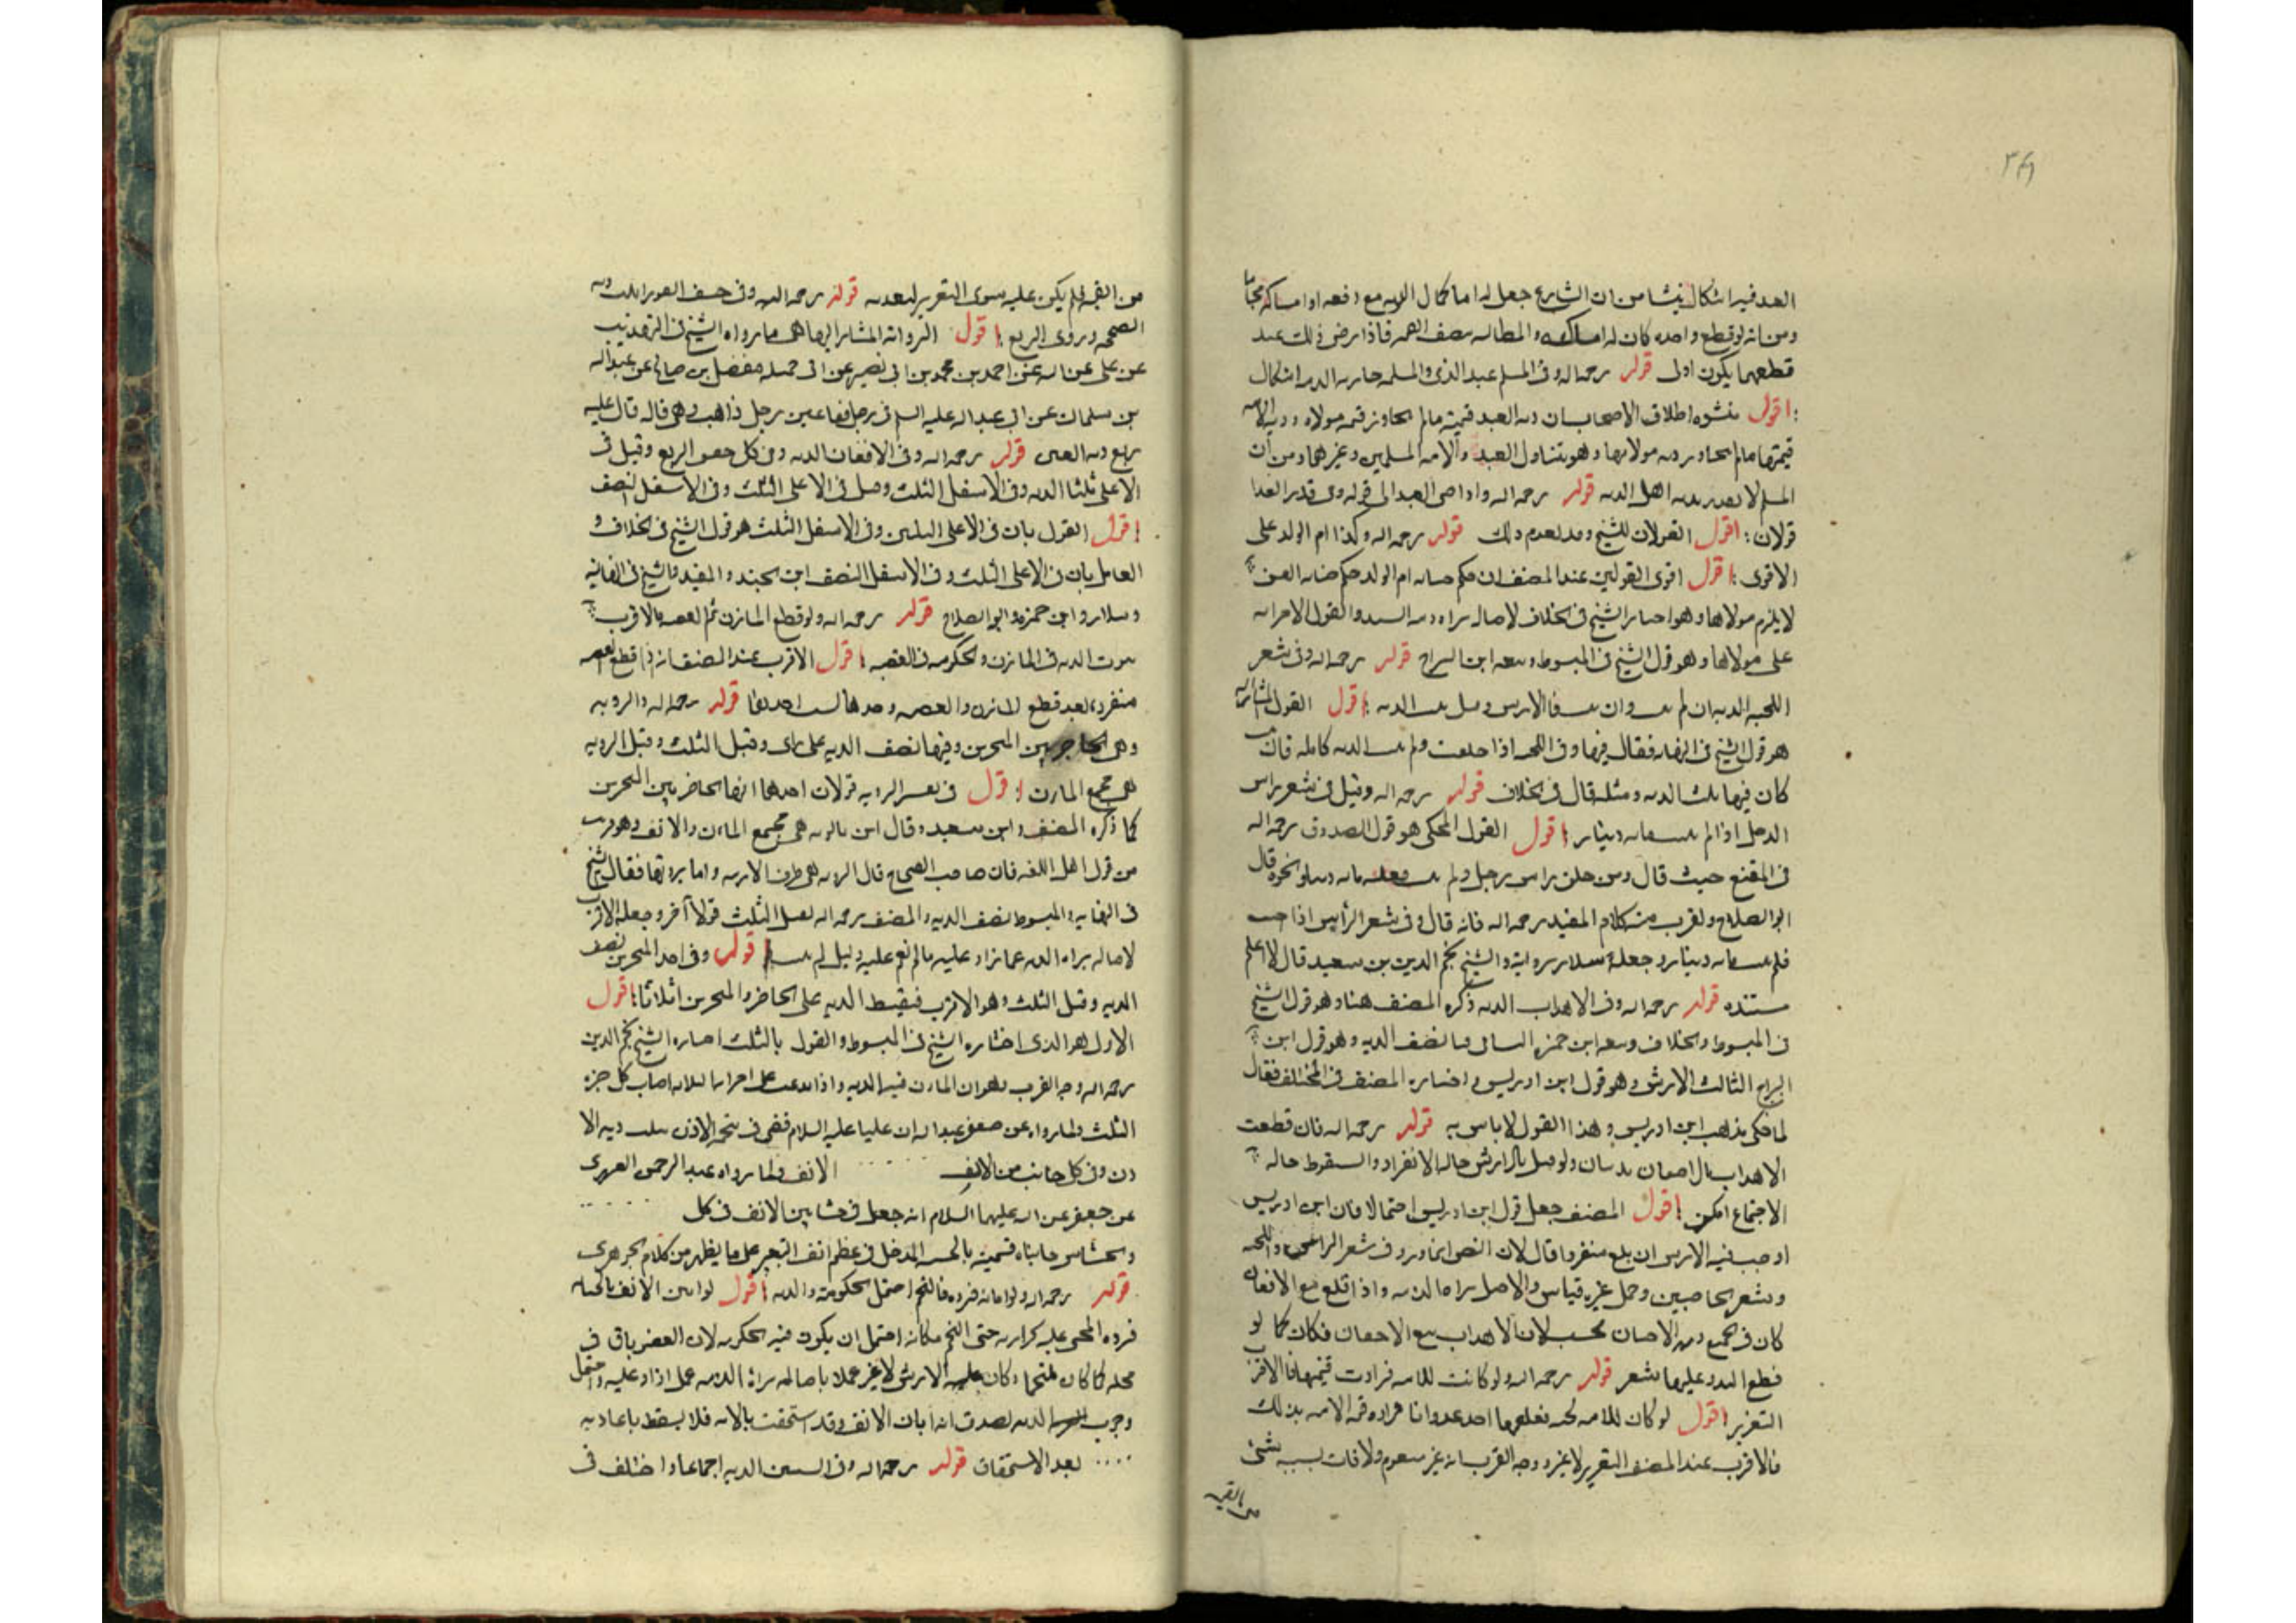 ٣٤٩
العبد فيه اشكال ينشا من ان الشارع جعل له اما كمال الدية مع دفعه او امساكه مجانا
ومن انه لو قطع واحده كان له امساكه والمطالبه بنصف القيمه فاذا رضى ذلك عند
قطعهما يكون اولى قوله رحمه الله وفى المسلم عبد الذمى والمسلمه جاريه الذميه اشكال
اقول منشوه اطلاق الاصحاب ان ديه العبد قيمته مالم يتجاوز قيمه مولاه وديه الامه
قيمتها مالم يتجاوز ديه مولاتها وهو يتناول العبد والامه المسلمين وغيرهما ومن ان
المسلم لا يقدر بديه اهل الذمه قوله رحمه الله واذا جنى العبد الى قوله وفى قدر الفدا
قولان اقول القولان للشيخ وقد تقدم ذلك قوله رحمه الله وكذا ام الولد على
الاقوى اقول اقوى القولين عند المصنف ان حكم جنايه ام الولد حكم جنايه القن
لا يلزم مولاها وهو اختيار الشيخ فى الخلاف لاصاله براه ذمه السيد والقول الاخر انه
على مولاها وهو قول الشيخ فى المبسوط وتبعه ابن البراج قوله رحمه الله وفى شعر
اللحيه الديه ان لم ينبت وان نبت فالارش وقيل ثلث الديه اقول القول المشار اليه
هو قول الشيخ فى النهايه فقال فيها وفى اللحيه اذا حلقت ولم تنبت الديه كامله فان نبتت
كان فيها ثلث الديه ومثله قال فى الخلاف قوله رحمه الله وقيل فى شعر راس
الرجل اذا لم ينبت مايه دينار اقول القول المحكى هو قول الصدوق رحمه الله
فى المقنع حيث قال ومن حلق راس رجل ولم ينبت فعليه مايه دينار ونحوه قال
ابو الصلاح ويقرب منه كلام المفيد رحمه الله فانه قال وفى شعر الراس اذا اصيب
فلم ينبت مايه دينار وجعله سلار روايه والشيخ نجم الدين بن سعيد قال لا اعلم
مستنده قوله رحمه الله وفى الاهداب الديه ذكره المصنف هنا وهو قول الشيخ
فى المبسوط والخلاف وتبعه ابن حمزه الثانى فيها نصف الديه وهو قول ابن
البراج الثالث الارش وهو قول ابن ادريس واختاره المصنف فى المختلف فقال
لما حكى مذهب ابن ادريس وهذا القول لا باس به قوله رحمه الله فان قطعت
الاهداب بالاجفان فديتان ولو قيل بالارش حاله الانفراد والسقوط حاله
الاجتماع امكن اقول المصنف جعل قول ابن ادريس احتمالا فان ابن ادريس
اوجب فيه الارش ان قلع منفردا قال لان النص انما ورد فى شعر الراس واللحيه
وشعر الحاجبين وحمل غيره قياس والاصل براه الذمه واذا قلع مع الاجفان
كان فى الجميع ديه الاجفان فحسب لان الاهداب تتبع الاجفان فكان كما لو
قطع اليد وعليها شعر قوله رحمه الله ولو كانت للامه فزادت قيمتها فالاقرب
التعزير اقول لو كان للامه لحيه فقلعها احد عدوانا فزاده قيمه الامه بذلك
فالاقرب عند المصنف التعزير لا غير ووجه القرب انه غير منقوم ولا فات بسببه شىء
من القيمه
من القيمه فلم يكن عليه سوى التعزير لتعديه قوله رحمه الله وفى خسف العوراء ثلث ديه
الصحيحه وروى الربع اقول الروايه المشار اليها هى ما رواه الشيخ فى التهذيب
عن على عن ابيه عن احمد بن محمد بن ابى نصر عن ابى جميله مفضل بن صالح عن عبدالله
بن سليمان عن ابى عبدالله عليه السلم فى رجل فقا عين رجل ذاهبه وهى قائمه قال عليه
ربع ديه العين قوله رحمه الله وفى الاجفان الديه وفى كل جفن الربع وقيل فى
الاعلى ثلثا الديه وفى الاسفل الثلث وقيل فى الاعلى الثلث وفى الاسفل النصف
اقول القول بان فى الاعلى الثلثين وفى الاسفل الثلث هو قول الشيخ فى الخلاف و
القايل بان فى الاعلى الثلث وفى الاسفل النصف ابن الجنيد والمفيد والشيخ فى النهايه
وسلار وابن حمزه وابو الصلاح قوله رحمه الله ولو قطع المارن ثم القصبه فالاقرب
ثبوت الديه فى المارن والحكومه فى القصبه اقول الاقرب عند المصنف انه اذا قطع القصبه
منفرده بعد قطع المارن والقصبه وحدها قوله رحمه الله والروثه
وهى الحاجز بين المنخرين وفيها نصف الديه على راى وقيل الثلث وقيل الروثه
هى مجمع المارن اقول فى تفسير الروثه قولان احدهما انها الحاجز بين المنخرين
كما ذكره المصنف وابن سعيد وقال ابن بابويه هى مجمع المارن والانف وهو قريب
من قول اهل اللغه فان صاحب الصحاح قال الروثه هى طرف الارنبه واما ديتها فقال الشيخ
فى النهايه والمبسوط نصف الديه والمصنف رحمه الله نقل الثلث قولا آخر وجعله الاقرب
لاصاله براه الذمه عما زاد عليه مالم يقم عليه دليل قوله وفى احد المنخرين نصف
الديه وقيل الثلث وهو الاقرب فيقسط الديه على الحاجز والمنخرين اثلاثا اقول
الاول هو الذى اختاره الشيخ فى المبسوط والقول بالثلث اختاره الشيخ نجم الدين
رحمه الله وجه القرب وهو ان المارن فيه الديه واذا اصاب كل جزء
الثلث ولما رواه عن عبدالله ان عليا عليه السلام قضى فى شحمه الاذن بثلث ديه الا
ذن وفى كل جانب من الانف ..... الانف ولما رواه عبد الرحمن العرزمى
عن جعفر عن ابيه عليهما السلام انه جعل فى خشاش الانف فى كل
وخشاش جانباه على ما يظهر من كلام الجوهرى
قوله رحمه الله ولو ابانه فرده فالتحم احتمل الحكومه والديه اقول لو ابين الانف بالجنايه
فرده المجنى عليه كحراره حتى التحم مكانه احتمل ان يكون فيه الحكومه لان العضو باق فى
محله كما كان ملتحما وكان عليه الارش لا غير عملا باصاله براه الذمه عما زاد عليه واحتمل
وجوب الديه لصدق انه ابان الانف وقد استحقت بالابانه فلا يسقط باعادته
بعد الاستحقاق قوله رحمه الله وفى الشفتين الديه اجماعا واختلف فى